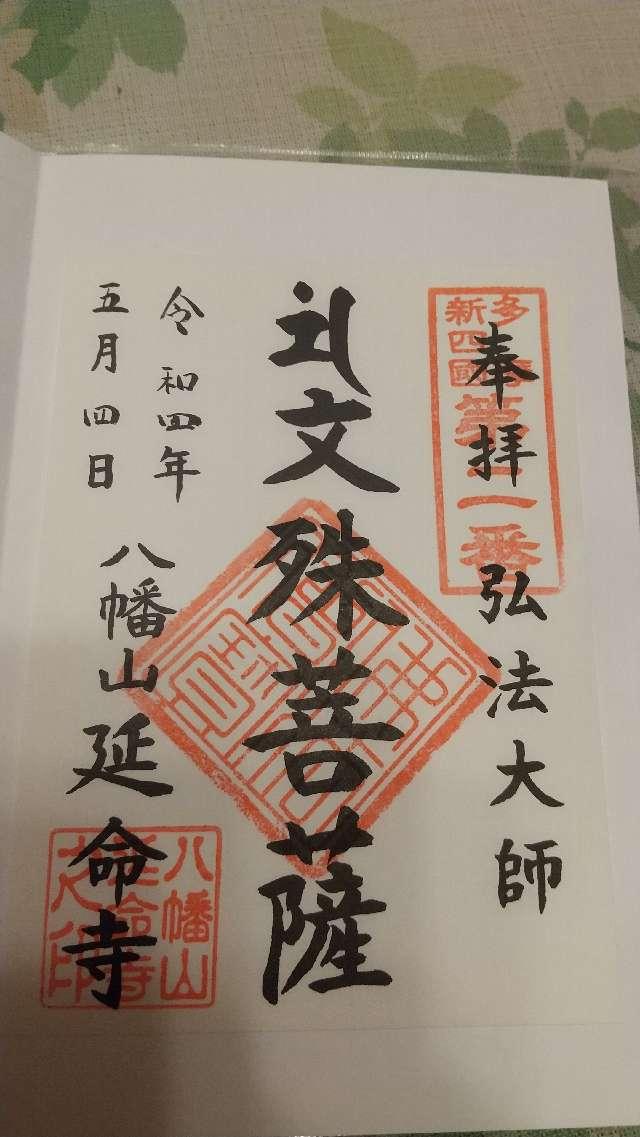 多摩
新四國
第二番
奉拝 弘法大師
礼文殊菩薩
令和四年
五月四日
八幡山延命寺
八幡山
延命寺
之印